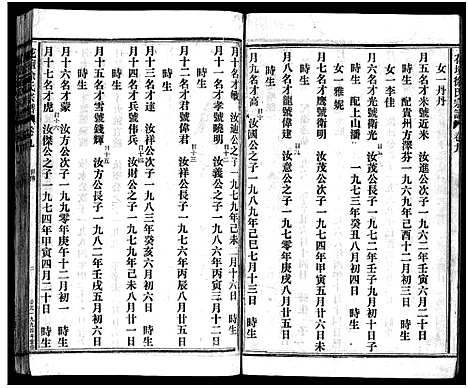 女一丹丹
月五名才米號近米　汝進公次子一九六六年丙午四月二十日　時生
配貴州方澤芬一九六九年己酉十二月初三日　時生
女一李佳
月六名才光號衛光　汝茂公長子一九七二年壬子九月初十日子時生
配上山潘　一九七三年癸丑八月初四日　時生
女一雅妮
月七名才鷹號衛明　汝茂公次子一九七四年甲寅六月初六日　時生
月八名才龍號偉建　汝意公之子一九七〇年庚戌八月廿五日　時生
月九名才高　汝國公之子一九八九年己巳七月十三日　時生
月十名才敏　汝迪公之子一九七九年己未二月十六日　時生
月十一名才孝號曉明　汝義公之子一九八六年丙寅三月十二日　時生
月十二名才君號偉君　汝祥公長子一九七六年丙辰八月初三日　時生
月十三名才達　汝祥公次子一九八三年癸亥六月初六日　時生
月十四名才兵號偉兵　汝財公之子一九七九年己未八月廿一日　時生
月十五名才雪號錢輝　汝方公長子一九八二年壬戌五月初六日　時生
月十六名才蒙　汝方公次子一九九〇年庚午十二月初一　時生
月十七名才虎　汝傑公之子一九七四年甲寅四月二十日　時生